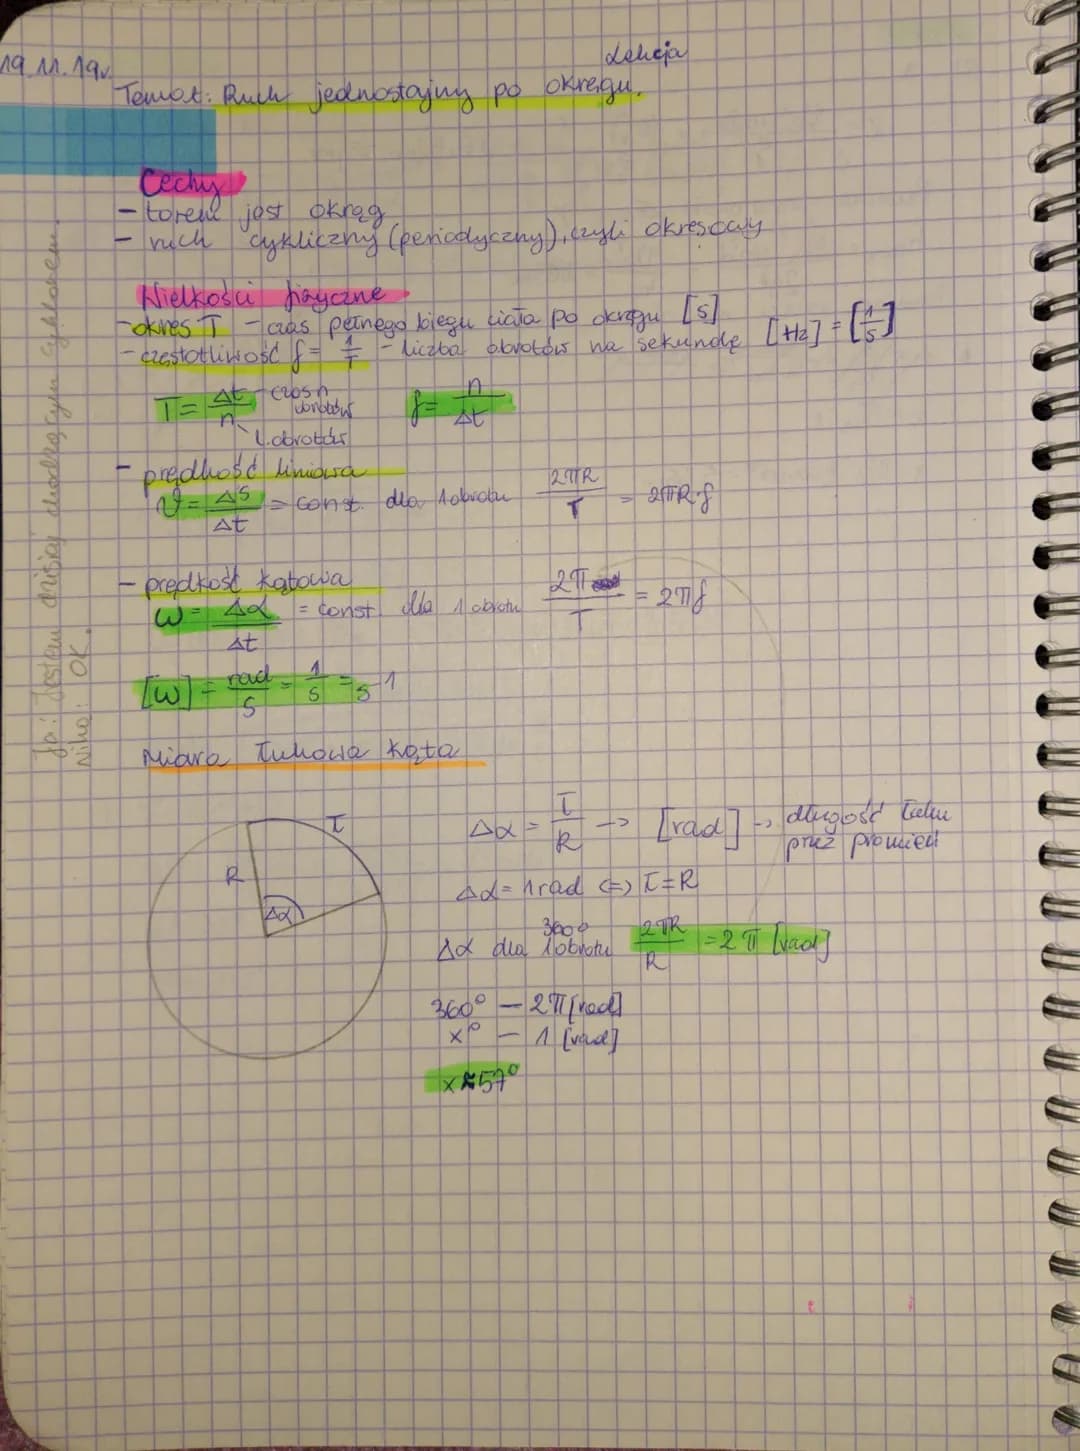 Lekcja
19.11.19r.
Temat: Ruch jednostajny po okręgu.
Cechy
- torem jest okrąg
- ruch cykliczny (periodyczny), czyli okresowy
Wielkości fizyczne
- okres T - czas pełnego biegu ciała po okręgu [s]
- częstotliwość f = 1/T - liczba obrotów na sekundę [Hz] = [1/s]
T = Δt/n czas n obrotów l. obrotów f = n/Δt
- prędkość liniowa
v = Δs/Δt = const. dla 1 obrotu 2πR/T = 2πR·f
- prędkość kątowa
ω = Δα/Δt = const dla 1 obrotu 2π/T = 2πf
[ω] = rad/s = 1/s = s⁻¹
Miara łukowa kąta
Ł
R
Δα
Δα = Ł/R → [rad] → długość łuku
przez promień
Δα = 1 rad ⇔ Ł = R
360°
Δα dla 1 obrotu 2πR/R = 2π [rad]
360° — 2π [rad]
x° — 1 [rad]
x ≈ 57°
Ja: Jestem dzisiaj chodzącym cyklonem.
Niko: OK.